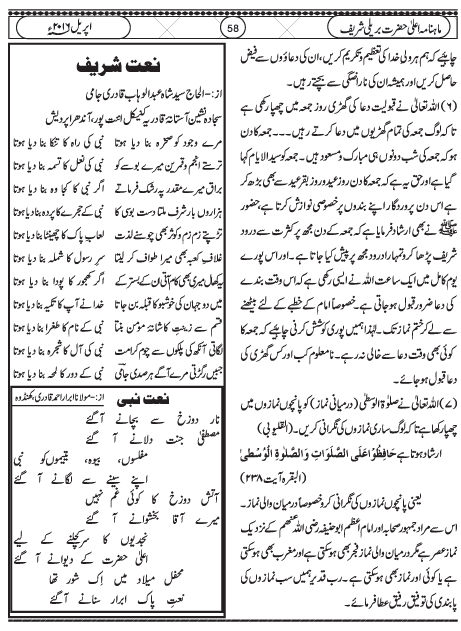 ماہنامہ اعلیٰ حضرت بریلی شریف
58
اپریل ۲۰۱۶ء
چاہیے کہ ہم ہر ولی خدا کی تعظیم و تکریم کریں، ان کی دعاؤں سے فیض
حاصل کریں اور ہمیشہ ان کی ناراضگی سے بچتے رہیں۔
(۶) اللہ تعالیٰ نے قبولیت دعا کی گھڑی روز جمعہ میں چھپا رکھی ہے
تاکہ لوگ جمعہ کی تمام گھڑیوں میں دعا کرتے رہیں۔۔۔ جمعہ کا دن
ہو کہ جمعہ کی شب دونوں ہی مبارک و مسعود ہیں۔ جمعہ کو سید الایام کہا
گیا ہے اور حق یہ ہے کہ جمعہ کا دن روز عید و روز بقر عید سے بھی بڑھ کر
ہے اس دن پروردگار اپنے بندوں پر خصوصی نوازش کرتا ہے، حضور
ﷺ نے بھی ارشاد فرمایا ہے کہ جمعہ کے دن مجھ پر کثرت سے درود
شریف پڑھا کرو تمہارا درود مجھ پر پیش کیا جاتا ہے۔ اور اس پورے
یوم کامل میں ایک ساعت اللہ نے ایسی رکھی ہے کہ اس وقت کسی
کی دعا ضرور قبول ہو جاتی ہے۔ خصوصاً امام کے خطبے کے لئے بیٹھنے
سے لے کر ختم نماز تک۔ لہٰذا ہمیں پوری کوشش کرنی چاہیے کہ جمعہ کا
کوئی بھی وقت دعا سے خالی نہ رہے۔ نا معلوم کب اور کس گھڑی کی
دعا قبول ہو جائے۔
(۷) اللہ تعالیٰ نے صلوٰۃ الوسطیٰ (درمیانی نماز) کو پانچوں نمازوں میں
چھپا رکھا ہے تاکہ لوگ ساری نمازوں کی نگرانی کریں۔ (القلیوبی)
ارشاد ہوتا ہے حَافِظُوْا عَلَی الصَّلَوَاتِ وَالصَّلٰوةِ الْوُسْطٰی
(البقرہ آیت ۲۳۸)
یعنی پانچوں نمازوں کی نگرانی کرو خصوصاً درمیان والی نماز۔
اس سے مراد جمہور صحابہ اور امام اعظم ابو حنیفہ رضی اللہ عنہم کے نزدیک
نماز عصر ہے مگر درمیان والی نماز فجر بھی ہو سکتی ہے اور مغرب بھی ہو سکتی
ہے یا کوئی اور نماز بھی ہو سکتی ہے۔ رب قدیر ہمیں سب نمازوں کی
پابندی کی توفیق رفیق عطا فرمائے۔
نعت شریف
از:۔ الحاج سید شاہ عبدالوہاب قادری جامی
سجادہ نشین آستانۂ قادریہ
آندھرا پردیش
مرے وجود کو صخرہ بنا دیا ہوتا نبی کی راہ کا تنکا بنا دیا ہوتا
ترستے انجم و قمرین میرے بوسے کو نبی کی نعل کا تسمہ بنا دیا ہوتا
براق میرے مقدر پہ رشک فرماتے اگر نبی کا کجا وہ بنا دیا ہوتا
ہزاروں بار شرف ملتا دست بوسی کا نبی کے حجرے کا پردہ بنا دیا ہوتا
تڑپتے زمزم و کوثر بھی چومنے لذت لعاب پاک کا چھینٹا بنا دیا ہوتا
غلاف کعبہ بھی میرا طواف کر لیتا سر رسول کا شملہ بنا دیا ہوتا
اگر کھجور کا پودا بنا دیا ہوتا
میں دو جہان کی خوشبو کا قبلہ بن جاتا خدا نے آپ کا تکیہ بنا دیا ہوتا
قسم سے زینت کاشانۂ مؤمن بنتا نبی کے نام کا طغرا بنا دیا ہوتا
لگاتی آنکھ کی پلکوں سے چوم کر امت نبی کی آل کا شجرہ بنا دیا ہوتا
جبیں رگڑتی مرے آگے ہر صدی جامیؔ نبی کے دور کا لمحہ بنا دیا ہوتا
نعت نبی
از:۔ مولانا ابرار احمد قادری، کھنڈوہ
نار دوزخ سے بچانے آ گئے
مصطفیٰ جنت دلانے آ گئے
مفلسوں، بیوہ، یتیموں کو نبی
اپنے سینے سے لگانے آ گئے
آتش دوزخ کا کوئی غم نہیں
میرے آقا بخشوانے آ گئے
نجدیوں کا سر کچلنے کے لیے
اعلیٰ حضرت کے دیوانے آ گئے
محفل میلاد میں اک شور تھا
نعت پاک ابرار سنانے آ گئے